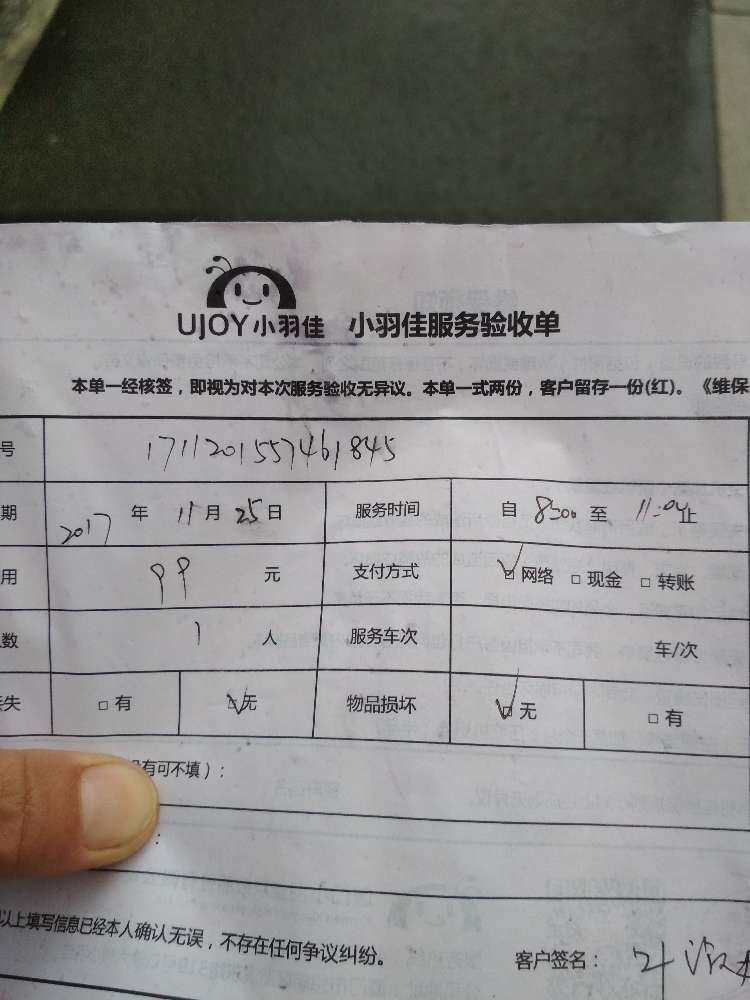 UJOY小羽佳 小羽佳服务验收单
本单一经核签，即视为对本次服务验收无异议。本单一式两份，客户留存一份(红)。《维保
号 1711201557461845
期 2017 年 11 月 25 日 服务时间 自 8:00 至 11:00 止
用 99 元 支付方式 ☑网络 □现金 □转账
数 1 人 服务车次 车/次
失 □有 ☑无 物品损坏 ☑无 □有
有可不填）：
：
以上填写信息已经本人确认无误，不存在任何争议纠纷。
客户签名：